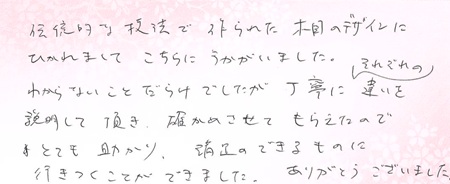 伝統的な技法で作られた木目のデザインに
ひかれまして こちらにうかがいました。
わからないことだらけでしたが 丁寧に それぞれの違いを
説明して頂き、確かめさせて もらえたので
とても助かり、満足のできるものに
行きつくことができました。 ありがとうございました。